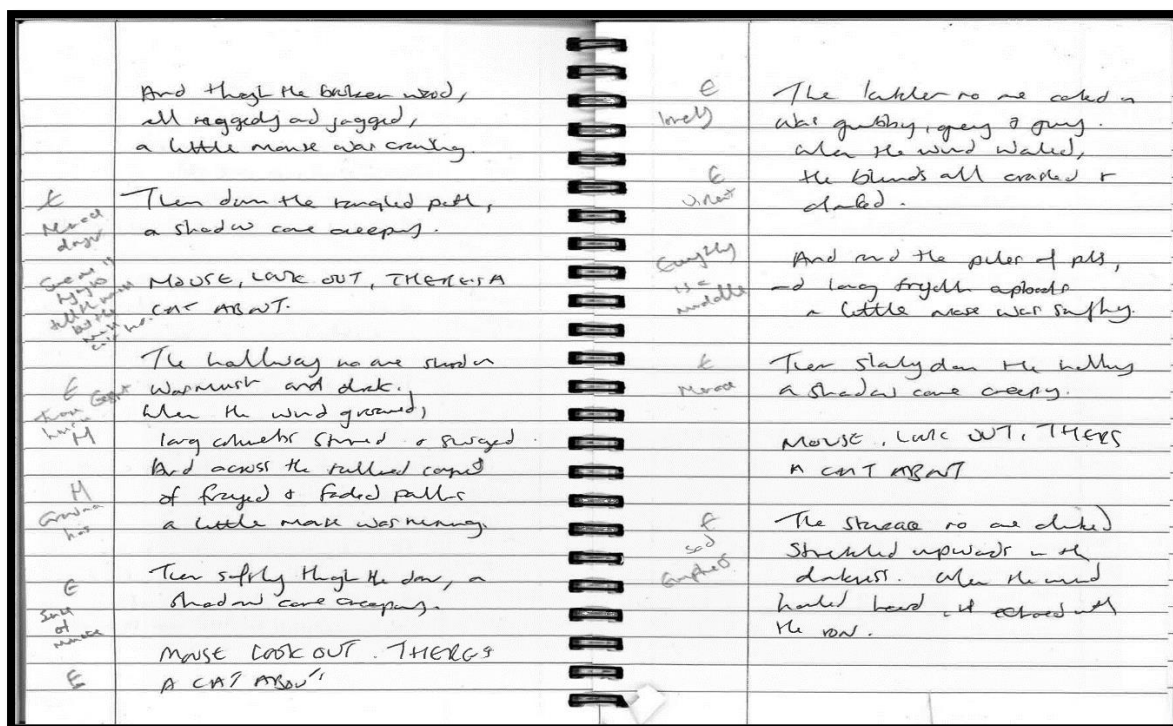 And though the broken wood,
all raggedy and jagged,
a little mouse was crawling.
E
Then down the tangled path,
a shadow came creeping.
Menace
danger
MOUSE, LOOK OUT, THERE'S A
CAT ABOUT.
The hallway no one stood in
was murky and dark.
E
When the wind groaned,
M
long cobwebs stirred & swayed.
And across the tattered carpet
M
of frayed & faded patches
Grandma
has
a little mouse was running.
E
Then softly though the door, a
shadow came creeping.
Sense
of
menace
MOUSE LOOK OUT. THERE'S
E
A CAT ABOUT
E
The kitchen no one cooked in
lonely
was grubby, grey & grimy.
When the wind wailed,
E
the blinds all cracked &
clacked.
Everything
is a
muddle
And round the piles of pots,
and long forgotten
a little mouse was sniffing.
E
Then slowly down the hallway
Menace
a shadow came creeping.
MOUSE, LOOK OUT, THERS
A CAT ABOUT
E
The staircase no one climbed
sad
Emptiness
stretched upwards in the
darkness. When the wind
howled hard it echoed with
the row.